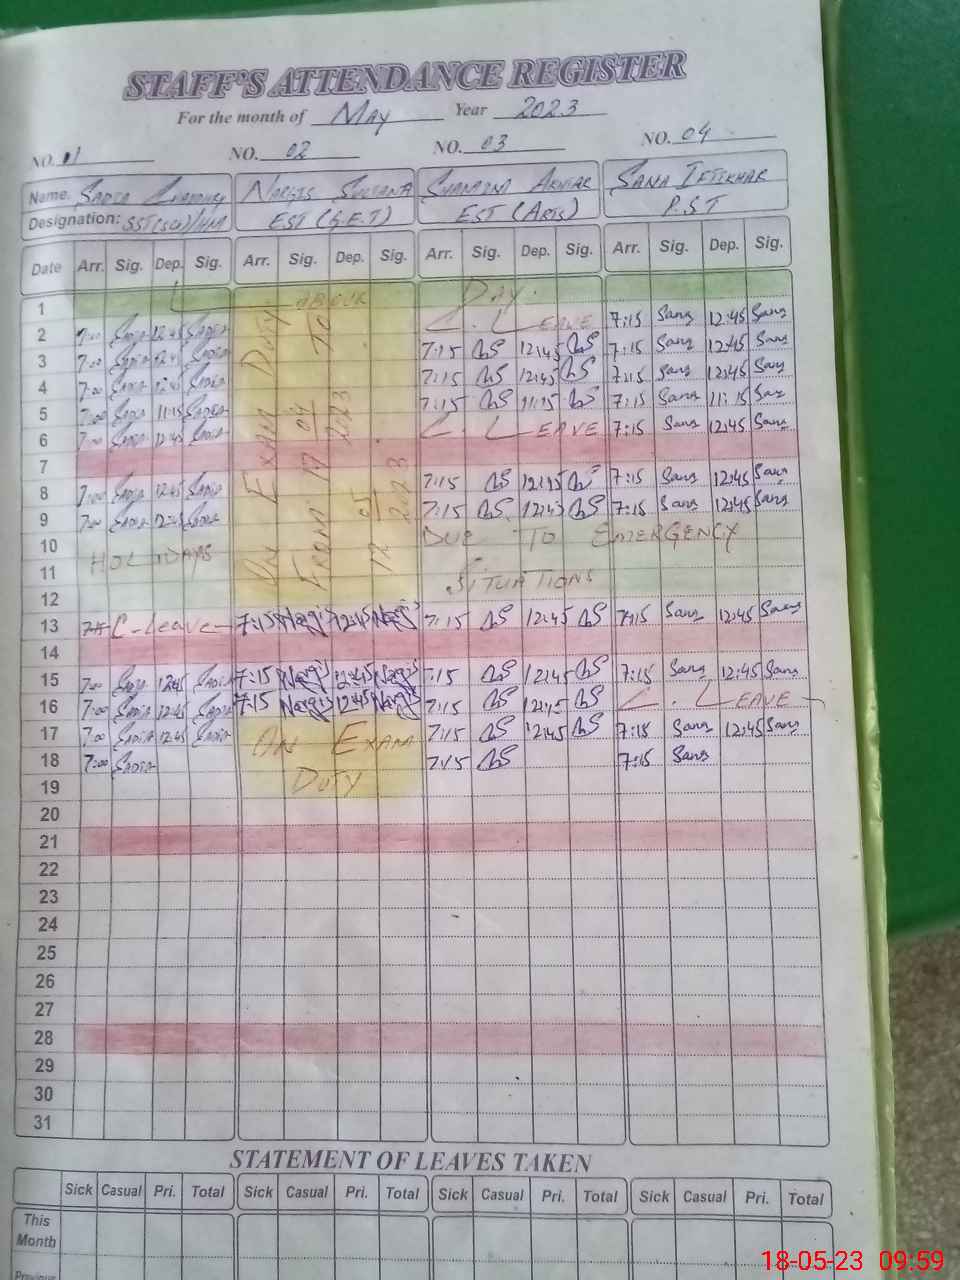 STAFF'S ATTENDANCE REGISTER
For the month of May Year 2023
NO. 01 NO. 02 NO. 03 NO. 04
Name. SADIA NARGIS SULTANA AKHTAR SANA IFTIKHAR
Designation: SST(Sci)/HM EST (S.E.T) EST (ARTS) P.ST
Date Arr. Sig. Dep. Sig. Arr. Sig. Dep. Sig. Arr. Sig. Dep. Sig. Arr. Sig. Dep. Sig.
1 LABOUR DAY.
2 7:00 SADIA 12:45 SADIA C. LEAVE 7:15 Sana 12:45 Sana
3 7:00 SADIA 12:45 SADIA 7:15 12:45 7:15 Sana 12:45 Sana
4 7:00 SADIA 12:45 SADIA 7:15 12:45 7:15 Sana 12:45 Sana
5 7:00 SADIA 11:15 SADIA 7:15 11:15 7:15 Sana 11:15 Sana
6 7:00 SADIA 12:45 SADIA C. LEAVE 7:15 Sana 12:45 Sana
7
8 7:00 SADIA 12:45 SADIA 7:15 12:45 7:15 Sana 12:45 Sana
9 7:00 SADIA 12:45 SADIA 7:15 12:45 7:15 Sana 12:45 Sana
ON EXAM DUTY
FROM 17 04 2023 TO
12 05 2023
10 HOLIDAYS DUE TO EMERGENCY
11 SITUATIONS
12
13 C-Leave 7:15 Nargis 12:45 Nargis 7:15 12:45 7:15 Sana 12:45 Sana
14
15 7:00 SADIA 12:45 SADIA 7:15 Nargis 12:45 Nargis 7:15 12:45 7:15 Sana 12:45 Sana
16 7:00 SADIA 12:45 SADIA 7:15 Nargis 12:45 Nargis 7:15 12:45 C. LEAVE
17 7:00 SADIA 12:45 SADIA ON EXAM 7:15 12:45 7:15 Sana 12:45 Sana
18 7:00 SADIA DUTY 7:15 7:15 Sana
19
20
21
22
23
24
25
26
27
28
29
30
31
STATEMENT OF LEAVES TAKEN
Sick Casual Pri. Total Sick Casual Pri. Total Sick Casual Pri. Total Sick Casual Pri. Total
This
Month
Previous
18-05-23 09:59